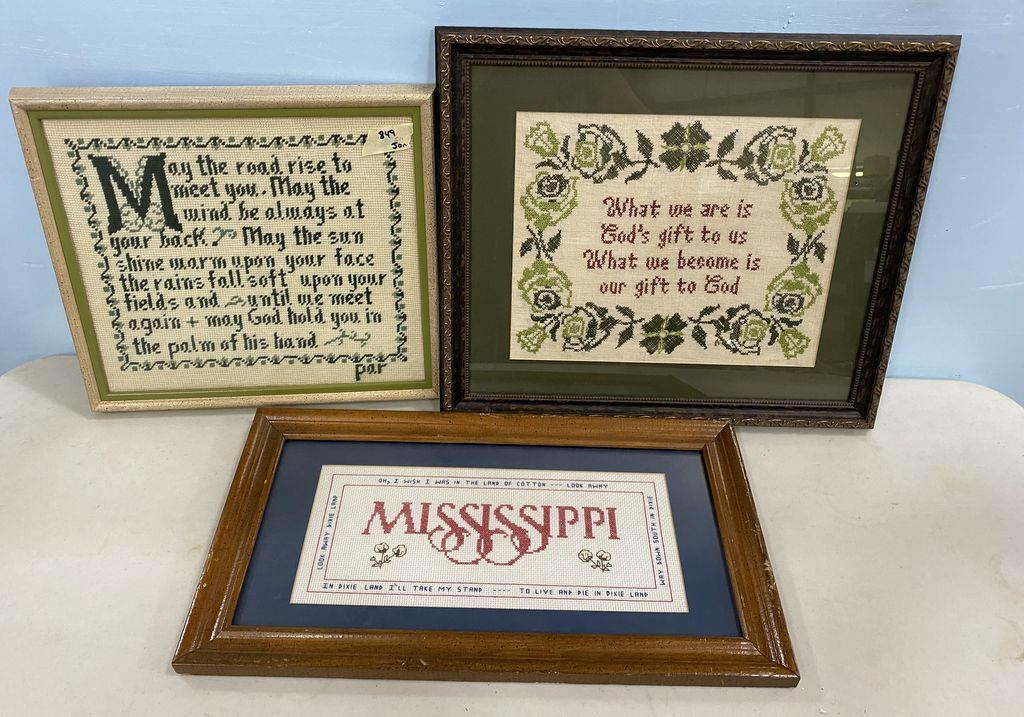 849
Jon
May the road rise to
meet you. May the
wind be always at
your back May the sun
shine warm upon your face
the rains fall soft upon your
fields and until we meet
again + may God hold you in
the palm of his hand
par
What we are is
God's gift to us
What we become is
our gift to God
OH, I WISH I WAS IN THE LAND OF COTTON --- LOOK AWAY
LOOK AWAY DIXIE LAND
MISSISSIPPI
WAY DOWN SOUTH IN DIXIE
IN DIXIE LAND I'LL TAKE MY STAND ---- TO LIVE AND DIE IN DIXIE LAND